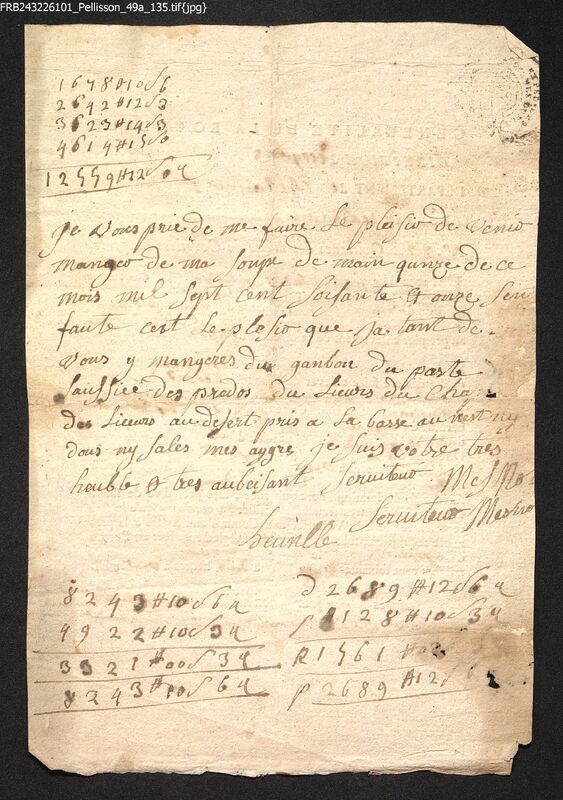 FRB243226101_Pellisson_49a_135.tif{jpg}
1678 ₶ 10 s 6
2642 ₶ 12 s 3
3623 ₶ 14 s 3
4614 ₶ 15 s 0
12559 ₶ 12 s 0 d
Je vous prie de me faire Le plaisio de venio
mangeo de ma soupe de main qunze de ce
mois mil sept cent soisante et onze sen
faute cest Le plesio que ja tant de
vous y mangeres du ganbon du paste
saussice des predos du Lieurs du Cha
des Lieurs au desert pris a La basse au nest ny
dous ny sales mes aygre je suis votre tres
houble et tres aubeisant serviteuo
serviteuo
8243 ₶ 10 s 6 d
4922 ₶ 10 s 3 d
3321 ₶ 00 s 3 d
8243 ₶ 10 s 6 d
D 2689 ₶ 12 s 6 d
p 1128 ₶ 10 s 3 d
R 1561 ₶
p 2689 ₶ 12 s 6